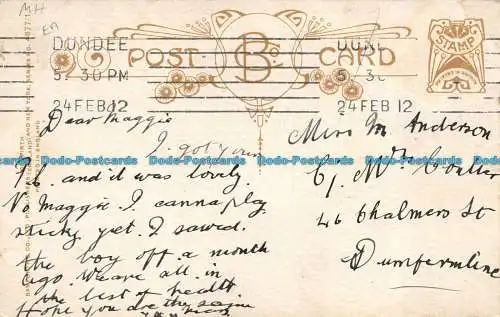 MH
EA
DUNDEE
5. 30 PM
24 FEB 12
DUN
5. 30
24 FEB 12
POST CARD
B Co.
STAMP
Dear Maggie
I got your
P.C. and it was lovely
No Maggie I canna play
sticky yet. I sawed
the boy off a month
ago. We are all in
the best of health
Hope you are the same
Miss M. Anderson
C/ Mrs Coulter
46 Chalmers St
Dunfermline
Dodo-Postcards Dodo-Postcards Dodo-Postcards Dodo-Postcards Dodo-Postcards